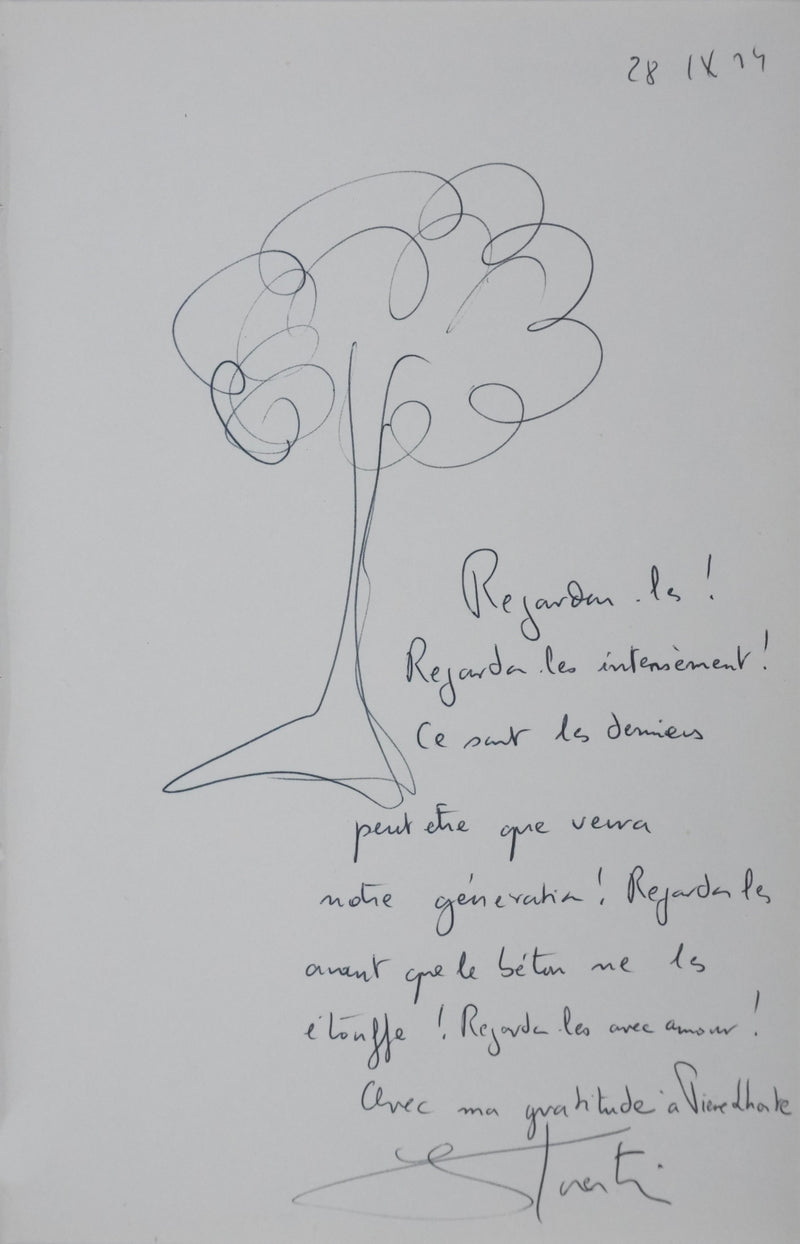 28 IX 14
Regardez-les !
Regardez-les intensèment !
Ce sont les derniers
peut etre que verra
notre génération ! Regardez les
avant que le béton ne les
étouffe ! Regardez-les avec amour !
Avec ma gratitude à Pierre Lhoste